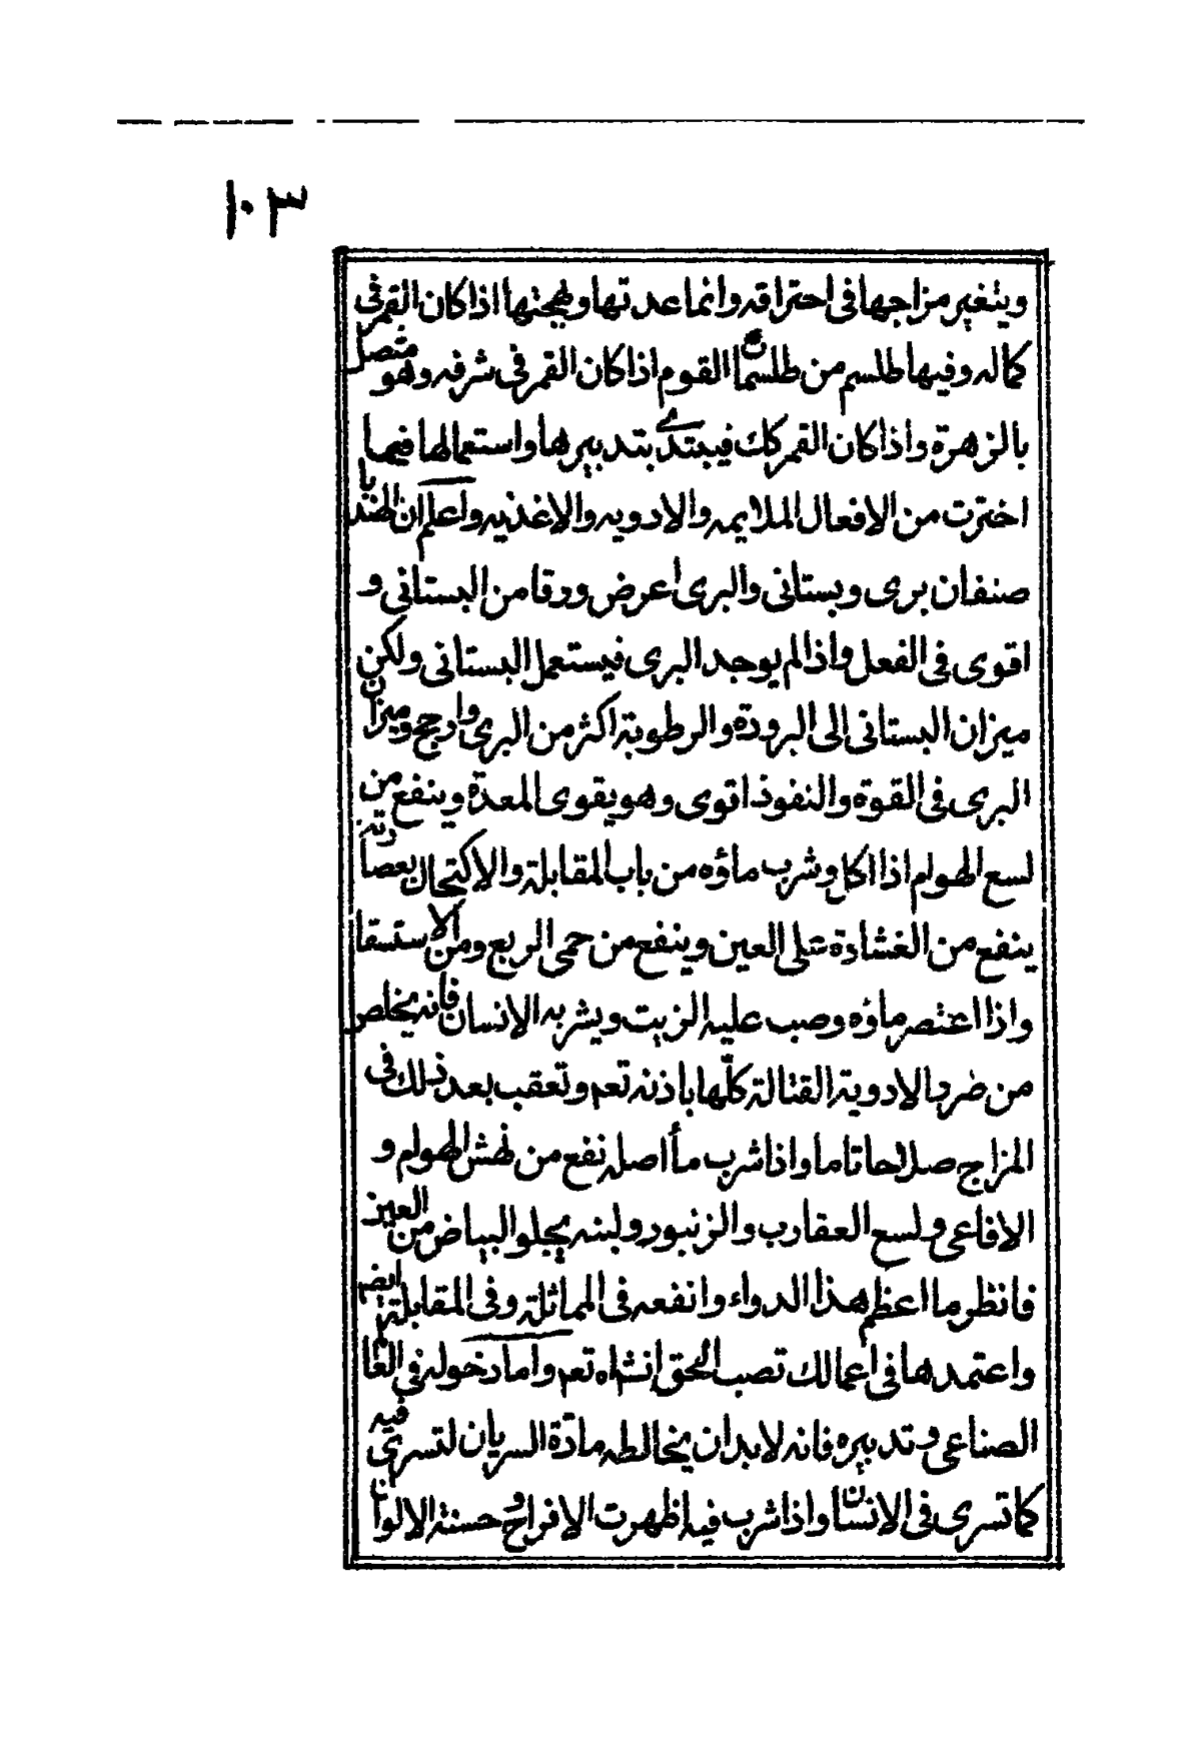 ١٠٣
ويتغير مزاجها فى احتراقه وانما عدتها وبهجتها اذا كان القمر فى
كماله وفيها طلسم من طلسمات القوم اذا كان القمر فى شرفه وهو متصل
بالزهرة واذا كان القمر كك فيبتدئ بتدبيرها واستعمالها فيما
اخترت من الافعال الملايمه والادويه والاغذيه واعلم ان الهندبا
صنفان برى وبستانى والبرى اعرض ورقا من البستانى و
اقوى فى الفعل واذا لم يوجد البرى فيستعمل البستانى ولكن
ميزان البستانى الى البرودة والرطوبة اكثر من البرى وارجح وميزان
البرى فى القوة والنفوذ اقوى وهو يقوى المعدة وينفع من
لسع الهوام اذا اكل وشرب ماؤه من باب المقابلة والاكتحال بعصارته
ينفع من الغشاوة على العين وينفع من حمى الربع ومن الاستسقا
واذا اعتصر ماؤه وصب عليه الزيت ويشربه الانسان فانه يخلص
من ضرر الادوية القتالة كلّها باذنه تعم وتعقب بعد ذلك فى
المزاج صلاحا تاما واذا شرب مأ اصله نفع من نهش الهوام و
الافاعى ولسع العقارب والزنبور ولبنه يجلو البياض من العين
فانظر ما اعظم هذا الدواء وانفعه فى المماثلة وفى المقابلة ايضم
واعتمدها فى اعمالك تصب الحق انشاه تعم واما دخوله فى العالم
الصناعى وتدبيره فانه لابد ان يخالطه مادّة السريان لتسرى فيه
كما تسرى فى الانسان واذا شرب فيه اظهرت الافراح وحسنة الالوان